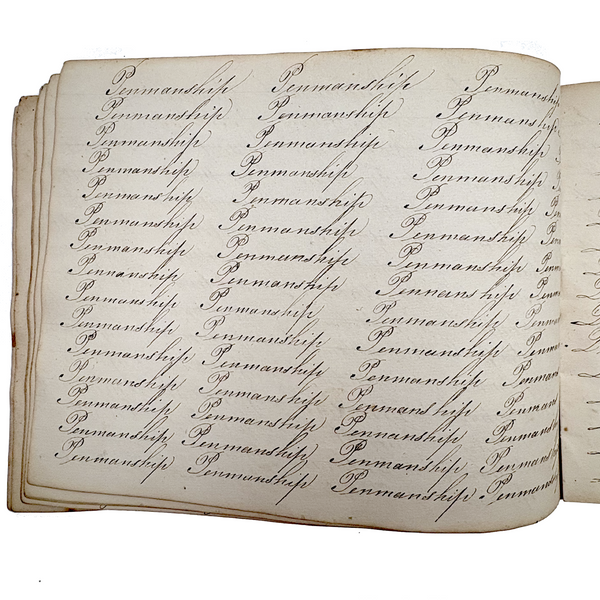 Penmanship Penmanship Penmansh
Penmanship Penmanship Penmanship
Penmanship Penmanship Penmanship
Penmanship Penmanship Penmanship
Penmanship Penmanship Penmanship
Penmanship Penmanship Penmanship Pen
Penmanship Penmanship Penmanship Penm
Penmanship Penmanship Penmanship Penm
Penmanship Penmanship Penmanship Penm
Penmanship Penmanship Penmanship Penma
Penmanship Penmanship Penmanship Penman
Penmanship Penmanship Penmanship Penman
Penmanship Penmanship Penmanship Penman
Penmanship Penmanship Penmanship Penmans
Penmanship Penmanship Penmanship Penmans